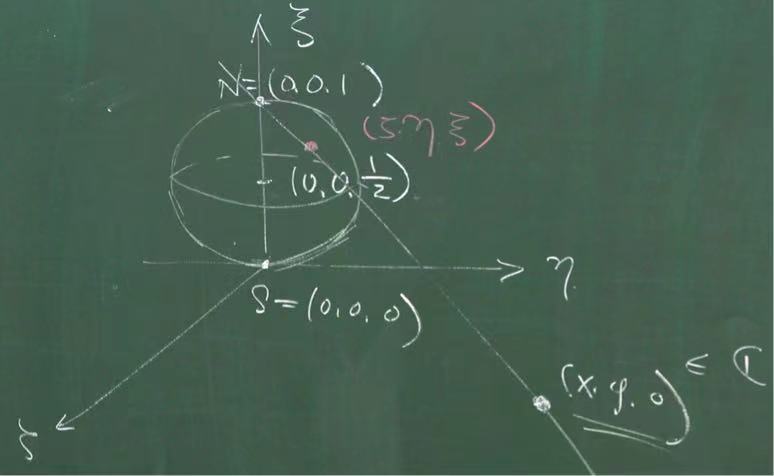 ξ
N=(0,0,1)
(ζ,η,ξ)
(0,0,1/2)
η
S=(0,0,0)
(x,y,0) ∈ ℂ
ζ